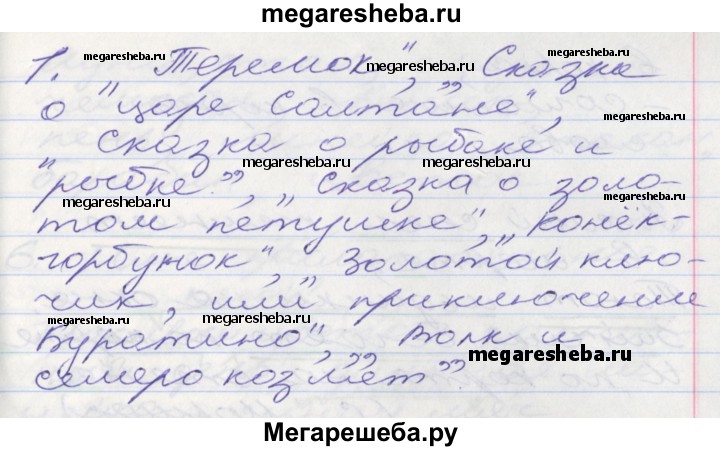 megaresheba.ru
1. "Теремок", "Сказка
о "царе Салтане",
"Сказка о рыбаке и
рыбке.", "Сказка о золо-
том петушке", "конёк-
горбунок", "Золотой клю-
чик, или приключении
Буратино", "Волк и
семеро козлят"
megaresheba.ru
megaresheba.ru
megaresheba.ru
megaresheba.ru
megaresheba.ru
megaresheba.ru
megaresheba.ru
megaresheba.ru
megaresheba.ru
megaresheba.ru
megaresheba.ru
megaresheba.ru
Мегарешеба.ру